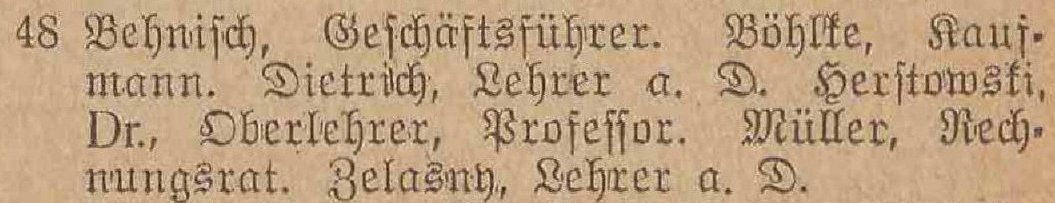 48 Behnisch, Geschäftsführer. Böhlke, Kauf-
mann. Dietrich, Lehrer a. D. Herstowski,
Dr., Oberlehrer, Professor. Müller, Rech-
nungsrat. Zelasny, Lehrer a. D.